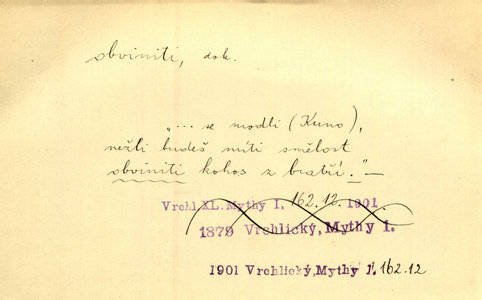 obviniti, dok.
„... se modli (Kuno),
nežli budeš míti smělost
obviniti kohos z bratří."—
Vrchl.XL.Mythy I. 162.12. 1901.
1879 Vrchlický, Mythy 1.
1901 Vrchlický, Mythy 1. 162.12